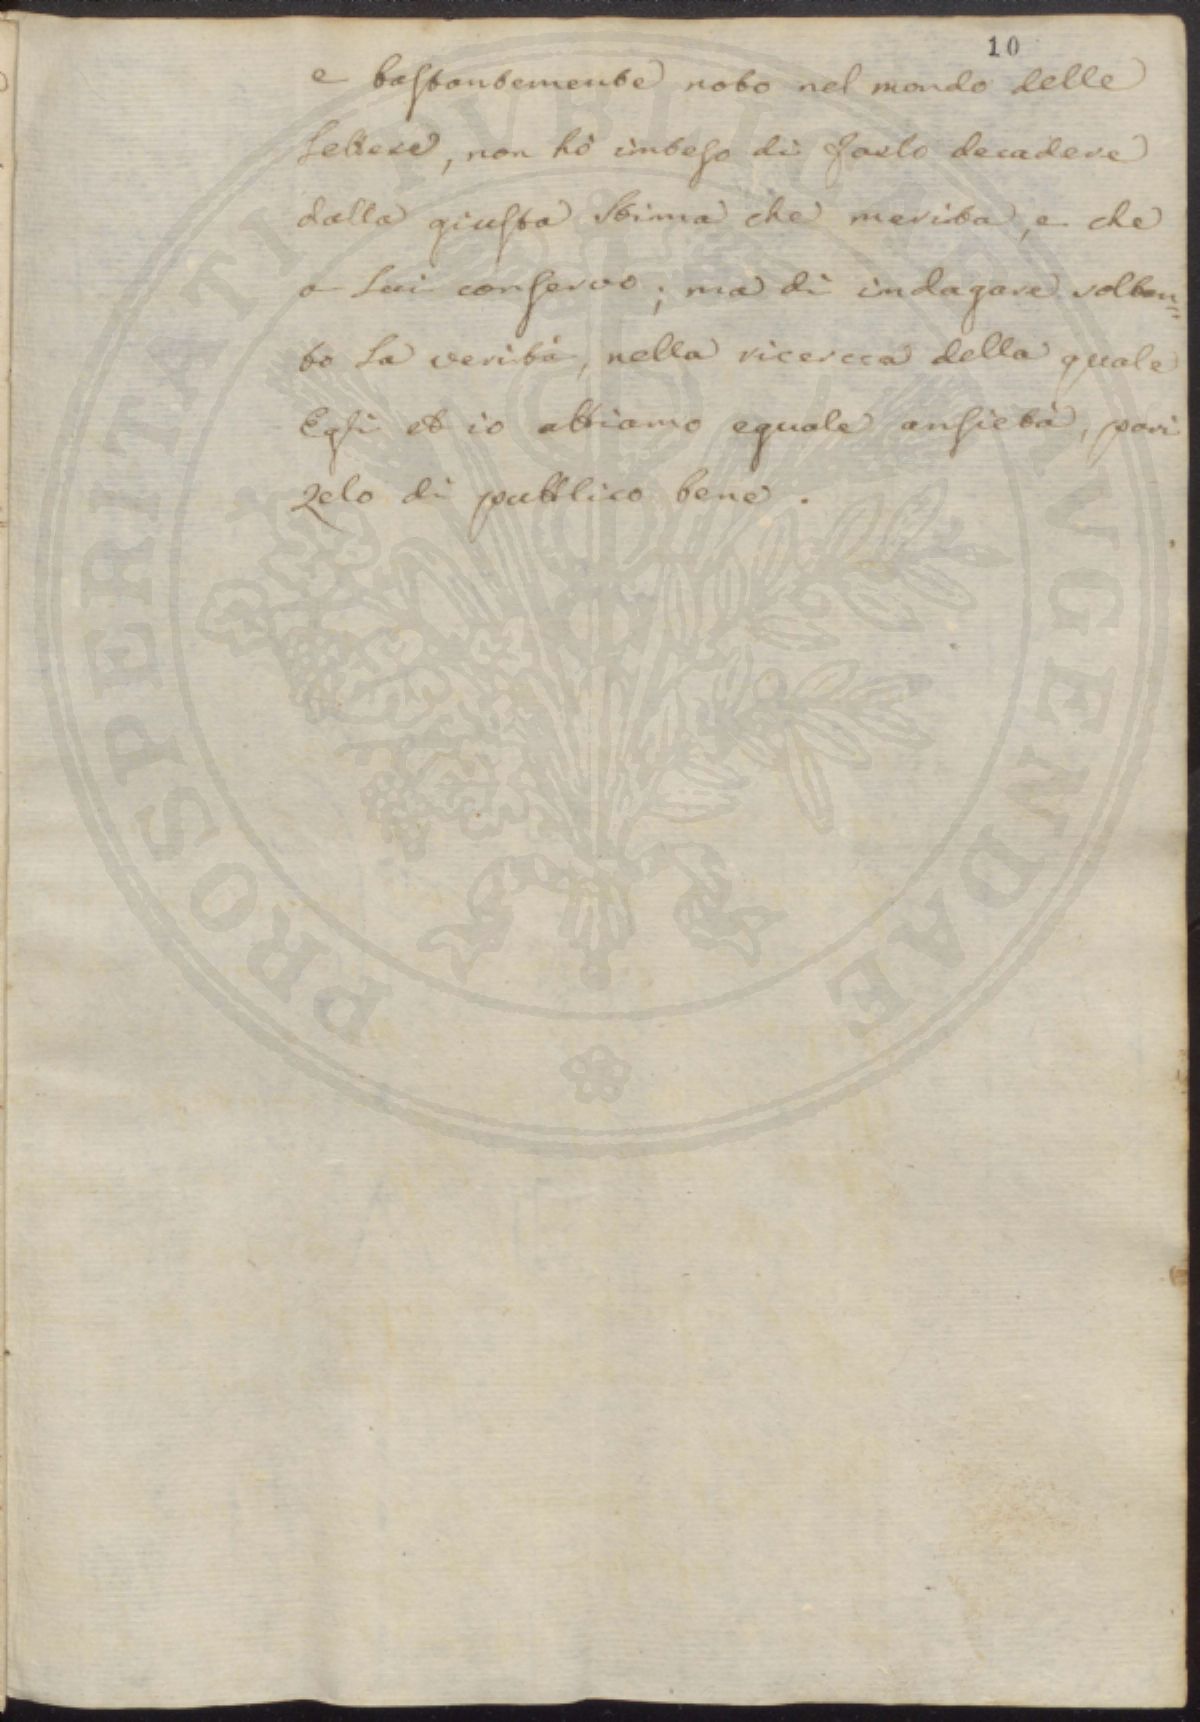 10
e bastantemente noto nel mondo delle
Lettere, non hò inteso di farlo decadere
dalla giusta stima che merita, e che
a Lui conservo; ma di indagare soltan=
to la verità, nella ricercca della quale
Egli et io abbiamo eguale ansietà, pari
zelo di pubblico bene.
PROSPERITATI PUBLICAE AVGENDAE